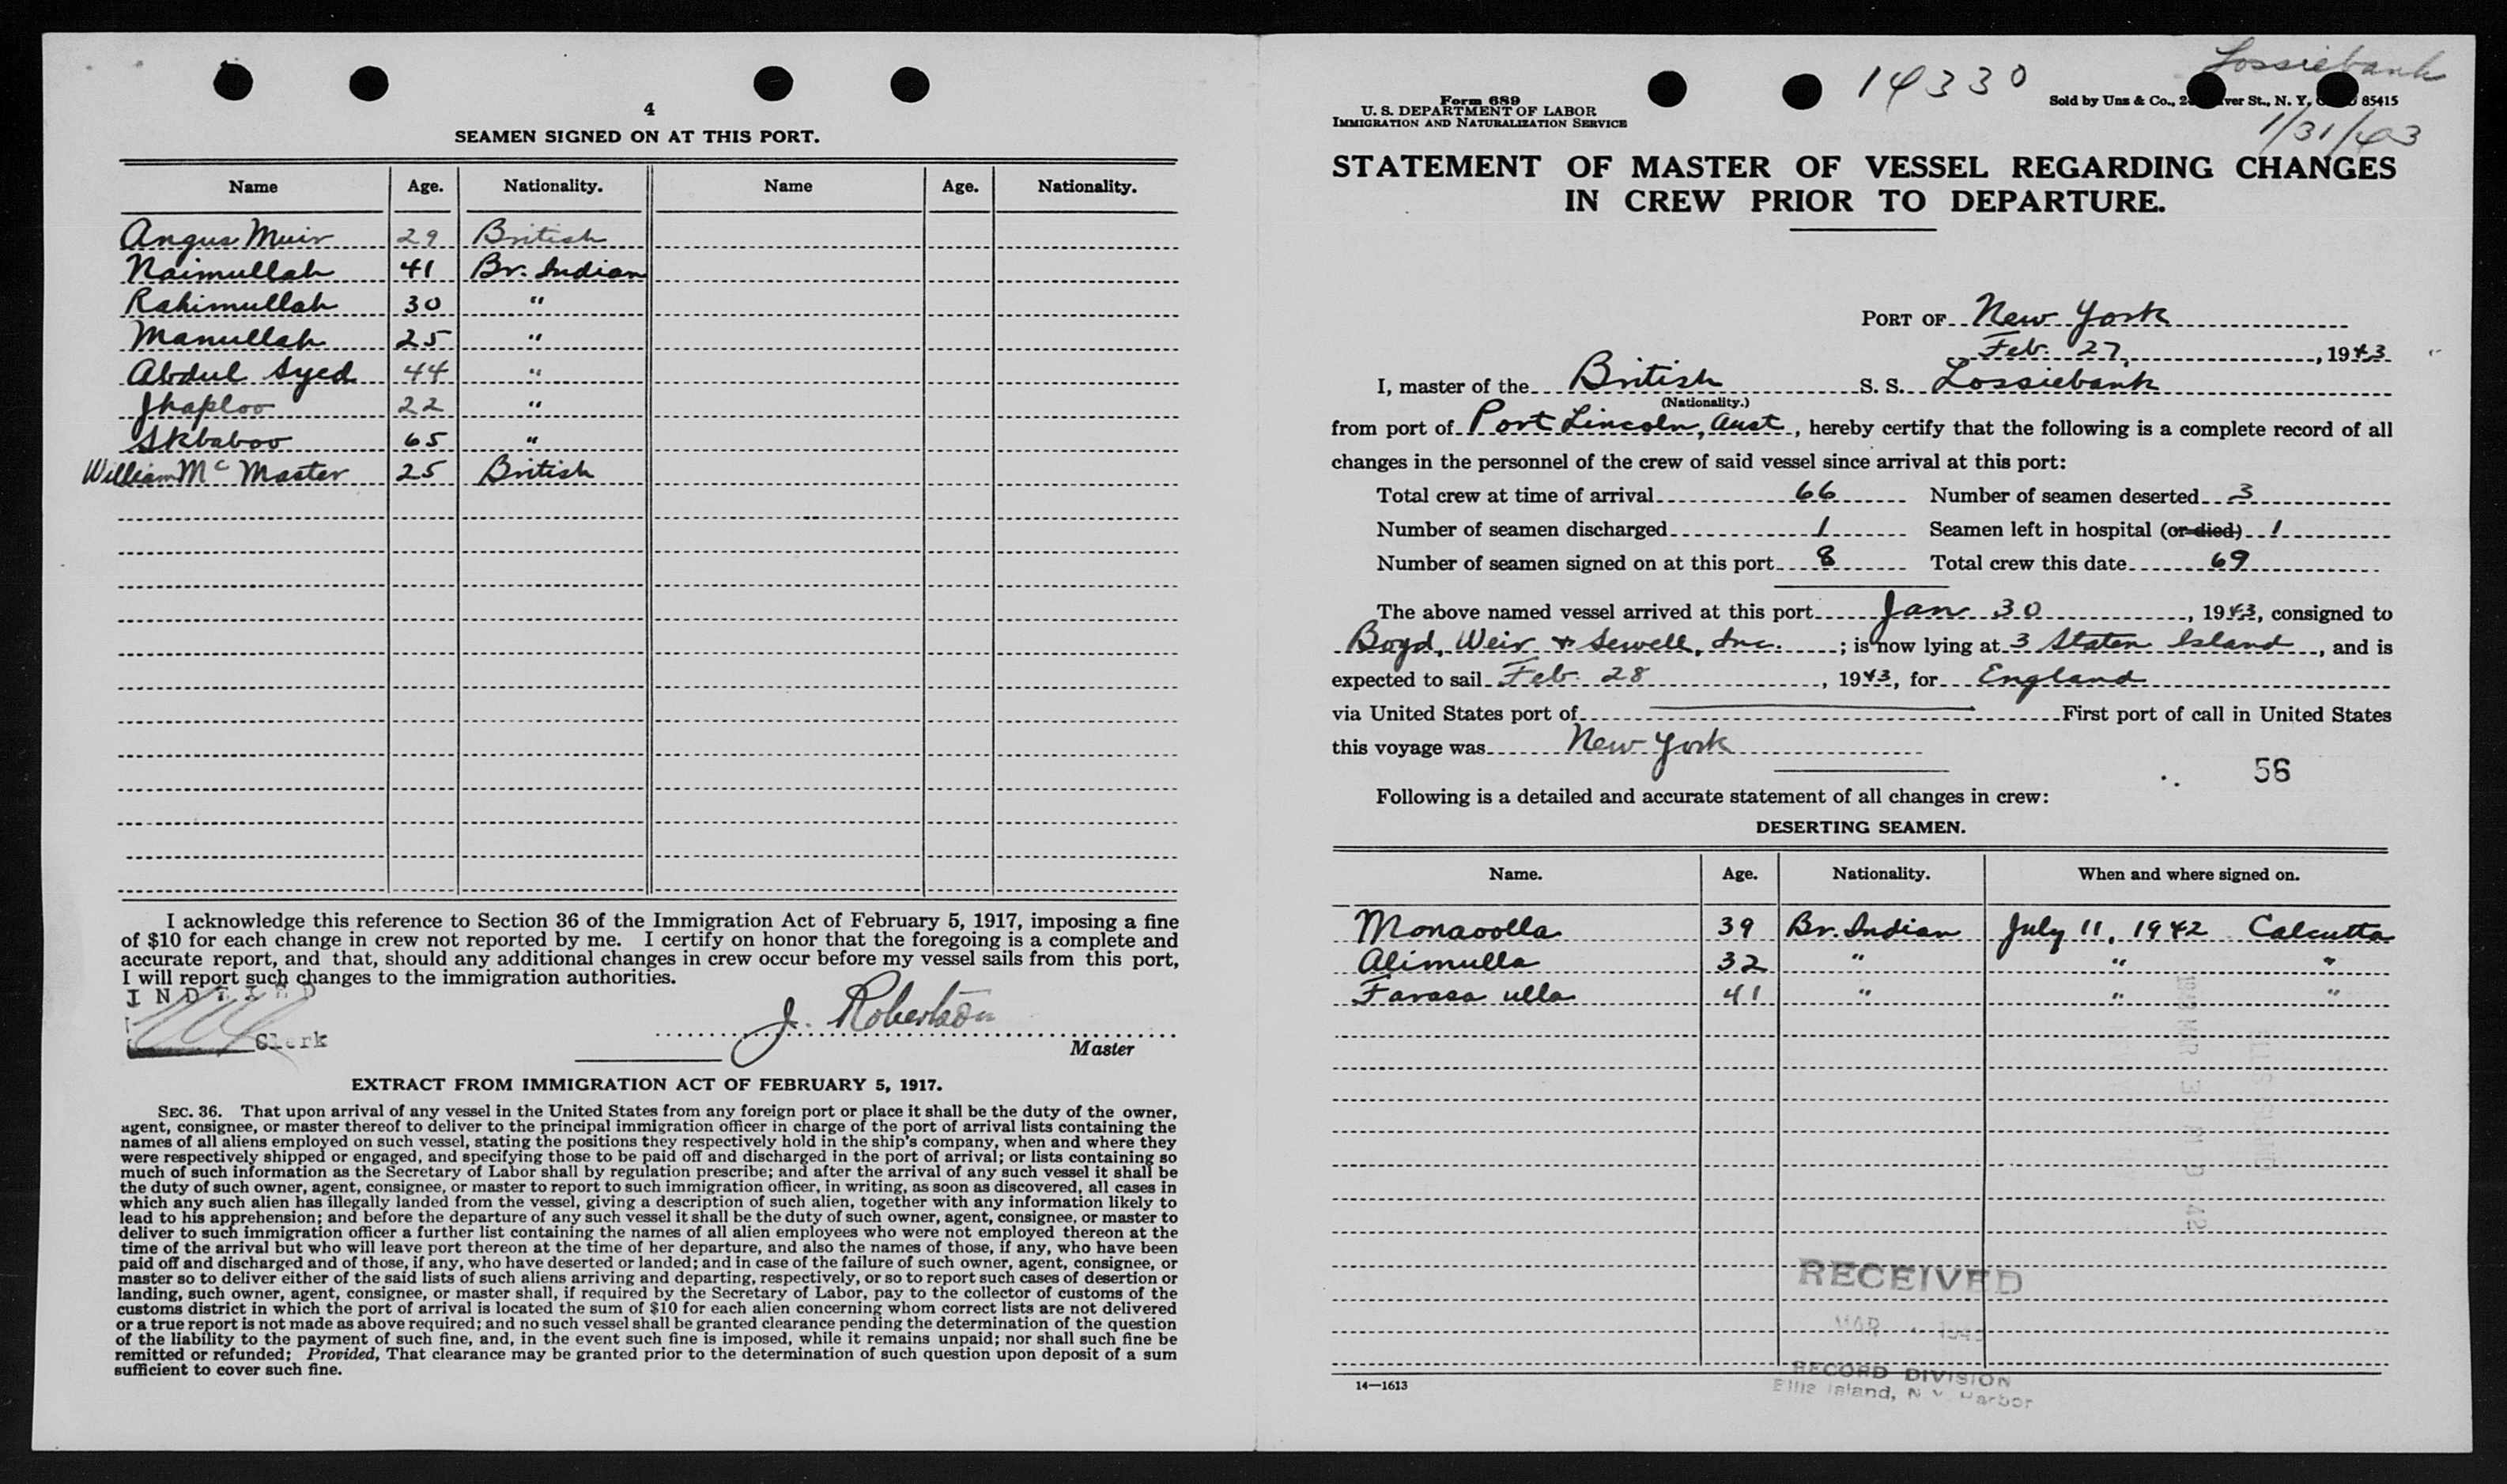 4
SEAMEN SIGNED ON AT THIS PORT.
Name Age. Nationality. Name Age. Nationality.
Angus Muir 29 British
Naimullah 41 Br. Indian
Rahimullah 30 "
Manullah 25 "
Abdul Syed 44 "
Jhaploo 22 "
Skbaboo 65 "
William Mc Master 25 British
I acknowledge this reference to Section 36 of the Immigration Act of February 5, 1917, imposing a fine
of $10 for each change in crew not reported by me. I certify on honor that the foregoing is a complete and
accurate report, and that, should any additional changes in crew occur before my vessel sails from this port,
I will report such changes to the immigration authorities.
J. Robertson
Clerk
Master
EXTRACT FROM IMMIGRATION ACT OF FEBRUARY 5, 1917.
SEC. 36. That upon arrival of any vessel in the United States from any foreign port or place it shall be the duty of the owner,
agent, consignee, or master thereof to deliver to the principal immigration officer in charge of the port of arrival lists containing the
names of all aliens employed on such vessel, stating the positions they respectively hold in the ship's company, when and where they
were respectively shipped or engaged, and specifying those to be paid off and discharged in the port of arrival; or lists containing so
much of such information as the Secretary of Labor shall by regulation prescribe; and after the arrival of any such vessel it shall be
the duty of such owner, agent, consignee, or master to report to such immigration officer, in writing, as soon as discovered, all cases in
which any such alien has illegally landed from the vessel, giving a description of such alien, together with any information likely to
lead to his apprehension; and before the departure of any such vessel it shall be the duty of such owner, agent, consignee, or master to
deliver to such immigration officer a further list containing the names of all alien employees who were not employed thereon at the
time of the arrival but who will leave port thereon at the time of her departure, and also the names of those, if any, who have been
paid off and discharged and of those, if any, who have deserted or landed; and in case of the failure of such owner, agent, consignee, or
master so to deliver either of the said lists of such aliens arriving and departing, respectively, or so to report such cases of desertion or
landing, such owner, agent, consignee, or master shall, if required by the Secretary of Labor, pay to the collector of customs of the
customs district in which the port of arrival is located the sum of $10 for each alien concerning whom correct lists are not delivered
or a true report is not made as above required; and no such vessel shall be granted clearance pending the determination of the question
of the liability to the payment of such fine, and, in the event such fine is imposed, while it remains unpaid; nor shall such fine be
remitted or refunded; Provided, That clearance may be granted prior to the determination of such question upon deposit of a sum
sufficient to cover such fine.
Lossiebank
14330
Form 689
U. S. DEPARTMENT OF LABOR
IMMIGRATION AND NATURALIZATION SERVICE
Sold by Unz & Co., St., N. Y. 85415
1/31/43
STATEMENT OF MASTER OF VESSEL REGARDING CHANGES
IN CREW PRIOR TO DEPARTURE.
PORT OF New York
Feb. 27, 1943
I, master of the British S. S. Lossiebank
(Nationality.)
from port of Port Lincoln, Aust., hereby certify that the following is a complete record of all
changes in the personnel of the crew of said vessel since arrival at this port:
Total crew at time of arrival 66 Number of seamen deserted 3
Number of seamen discharged 1 Seamen left in hospital (or died) 1
Number of seamen signed on at this port 8 Total crew this date 69
The above named vessel arrived at this port Jan 30, 1943, consigned to
Boyd, Weir & Sewell, Inc.; is now lying at 3 Staten Island, and is
expected to sail Feb. 28, 1943, for England
via United States port of First port of call in United States
this voyage was New York
56
Following is a detailed and accurate statement of all changes in crew:
DESERTING SEAMEN.
Name. Age. Nationality. When and where signed on.
Monaoolla 39 Br. Indian July 11, 1942 Calcutta
Alimulla 32 " " "
Farasa ulla 41 " " "
RECEIVED
RECORD DIVISION
Ellis Island, N. Y. Harbor
14—1613